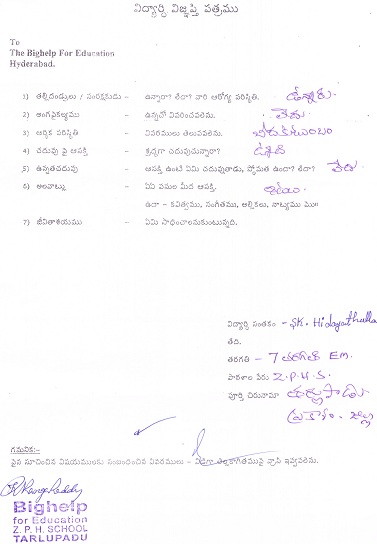 విద్యార్ధి విజ్ఞప్తి పత్రము
To
The Bighelp For Education
Hyderabad.
1) తల్లిదండ్రులు / సంరక్షకుడు – ఉన్నారా? లేదా? వారి ఆరోగ్య పరిస్థితి. ఉన్నారు.
2) అంగవైకల్యము – ఉన్నచో వివరించవలెను. లేదు
3) ఆర్థిక పరిస్థితి – వివరములు తెలుపవలెను.
4) చదువు పై ఆసక్తి – శ్రద్ధగా చదువుచున్నారా?
5) ఉన్నతచదువు – ఆసక్తి ఉంటే ఏమి చదువుతాడు, స్తోమత ఉందా? లేదా?
6) అలవాట్లు – ఏయే పనుల మీద ఆసక్తి.
ఉదా – కవిత్వము, సంగీతము, అల్లికలు, నాట్యము మొ॥
7) జీవితాశయము – ఏమి సాధించాలనుకుంటున్నది.
విద్యార్థి సంతకం – SK. Hidayathulla
తేది.
తరగతి – 7 తరగతి EM.
పాఠశాల పేరు Z.P.H.S.
పూర్తి చిరునామా తర్లుపాడు
ప్రకాశం. జిల్లా
గమనిక:–
పైన సూచించిన విషయములకు సంబంధించిన వివరములు – విడిగా తెల్లకాగితముపై వ్రాసి ఇవ్వవలెను.
Bighelp
for Education
Z. P. H. SCHOOL
TARLUPADU